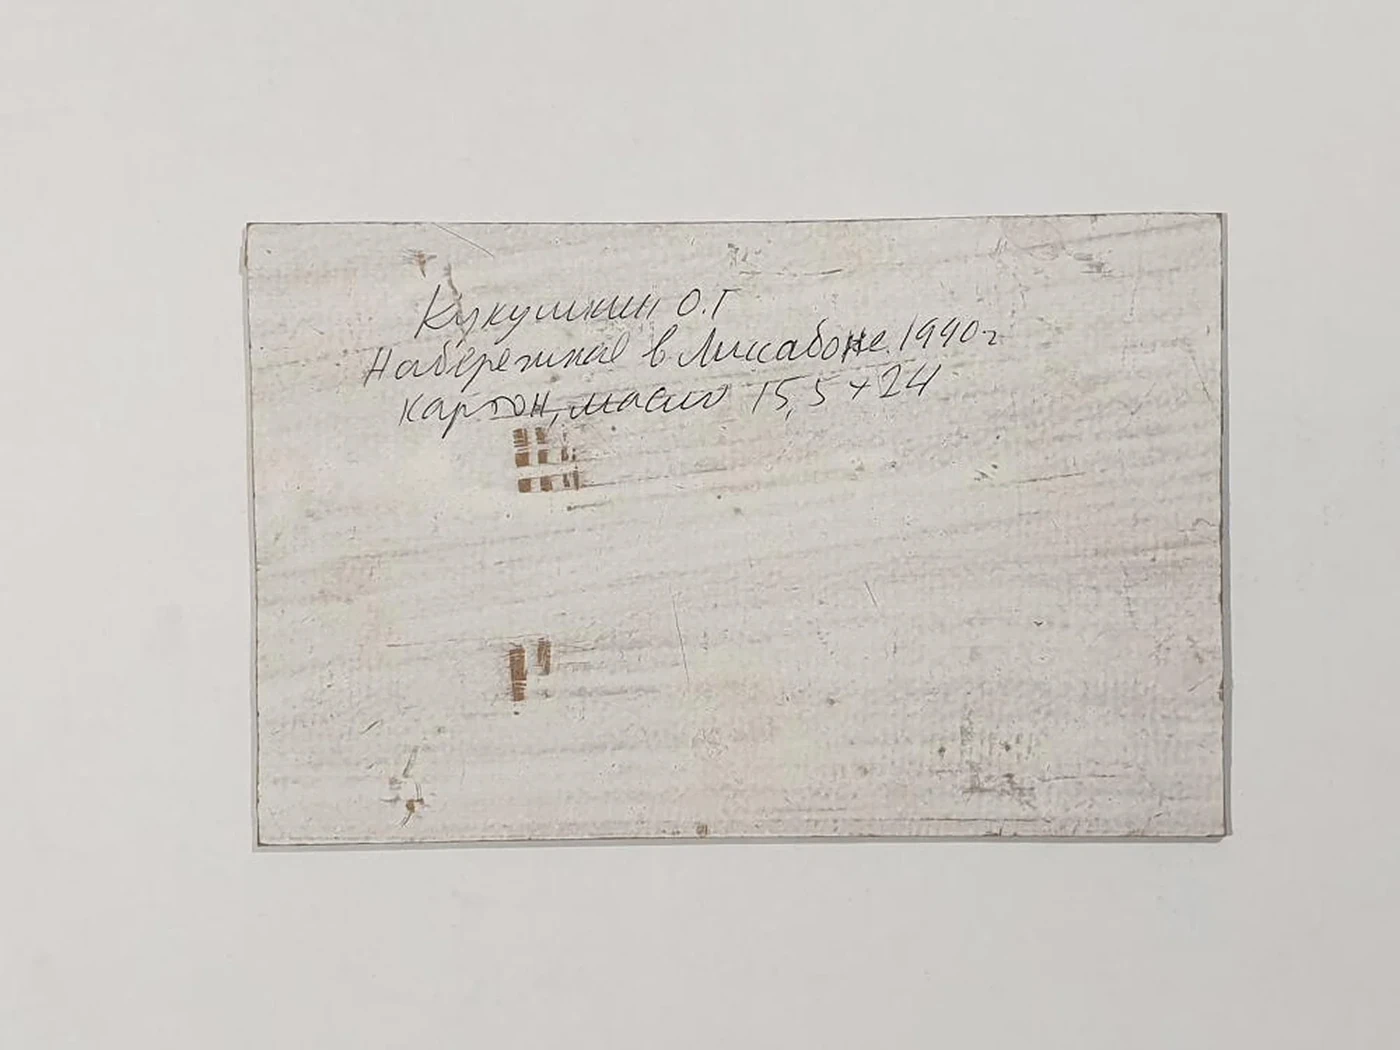 Кукушкин О.Г
Набережная в Лиссабоне. 1990г
картон, масло 15,5 х 24